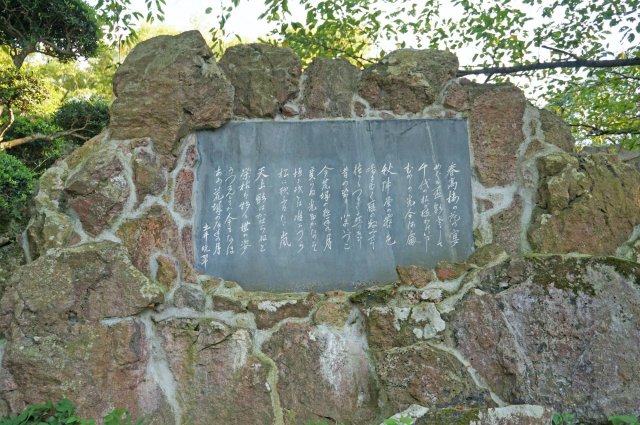 春高楼の花の宴
めぐる盃影さして
千代の松が枝わけ出でし
むかしの光今いづこ
秋陣営の霜の色
鳴き行く雁の数見せて
植うるつるぎに照りそひし
昔の光今いづこ
今荒城の夜半の月
変らぬ光たがためぞ
垣に残るはただかつら
松に歌ふはただ嵐
天上影は変らねど
栄枯は移る世の姿
うつさんとてか今もなほ
あゝ荒城の夜半の月
土井晩翠